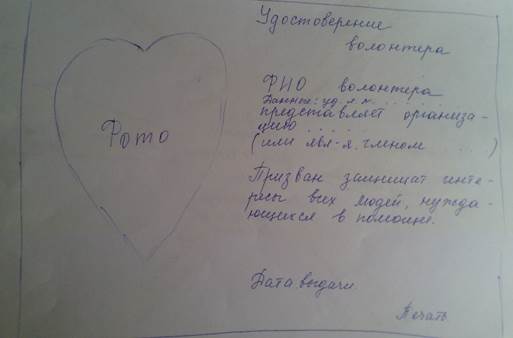 Фото
Удостоверение
волонтера
ФИО волонтера
Данные: уд. л. н. . . . .
представляет организа-
цию . . . .
(или явл-я. членом . . )
Призван защищат инте-
ресы всех людей, нужда-
ющихся в помощи.
Дата выдачи
Печать